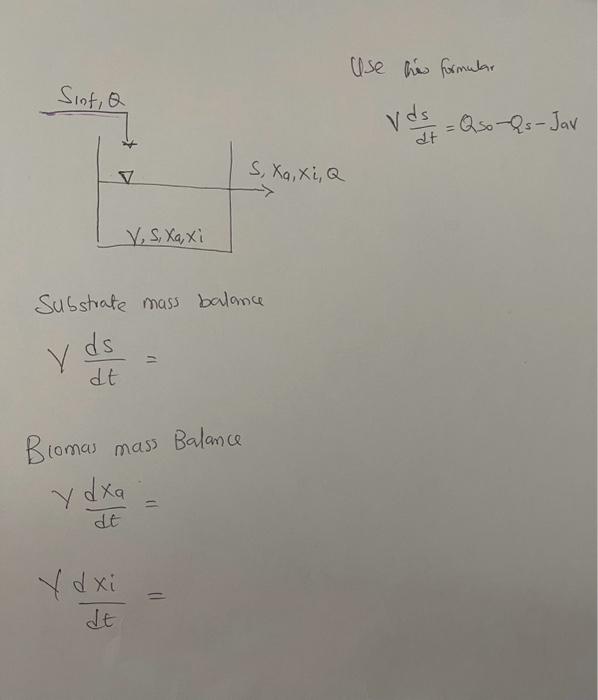 Use this formular
V ds/dt = Qso - Qs - Jav
Sinf, Q
S, Xa, Xi, Q
V, S, Xa, Xi
Substrate mass balance
V ds/dt =
Biomas mass Balance
V dXa/dt =
V dxi/dt =